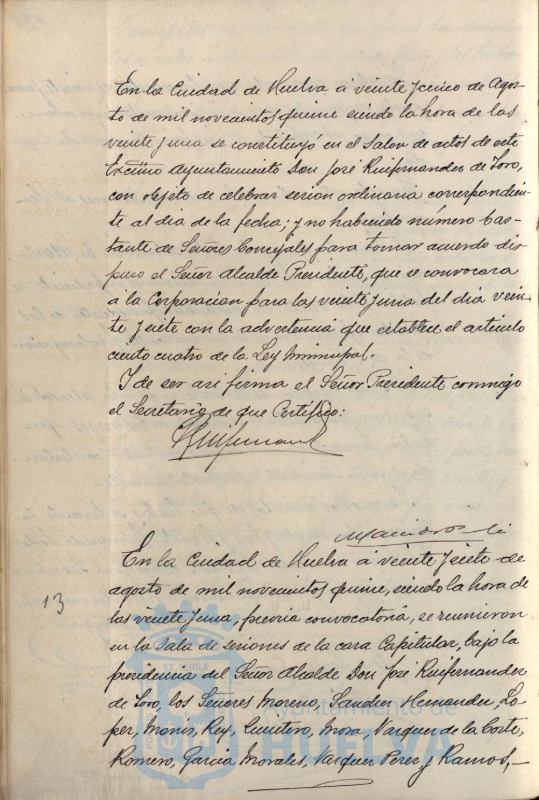 En la Ciudad de Huelva á veinte y cinco de Agos-
to de mil novecientos quince siendo la hora de las
veinte y una se constituyó en el Salon de actos de este
Excimo Ayuntamiento Don José Ruifernandez de Toro,
con objeto de celebrar sesion ordinaria correspondien-
te al dia de la fecha; y no habiendo número bas-
tante de Señores Concejales para tomar acuerdo dis-
puso el Señor Alcalde Presidente, que se convocara
á la Corporacion para las veinte y una del dia vein-
te y siete con la advertencia que establece el articulo
ciento cuatro de la Ley Municipal.
Y de ser asi firma el Señor Presidente conmigo
el Secretario de que Certifico:
En la Ciudad de Huelva á veinte y siete de
13
agosto de mil novecientos quince, siendo la hora de
las veinte y una, previa convocatoria, se reunieron
en la Sala de sesiones de la casa Capitular, bajo la
presidencia del Señor Alcalde Don José Ruifernandez
de Toro, los Señores Moreno, Sanchez Hernandez, Lo-
pez, Monis, Rey, Quintero, Mora, Vazquez de la Corte,
Romero, Garcia Morales, Vazquez Perez y Ramos,
Ayuntamiento de
HUELVA